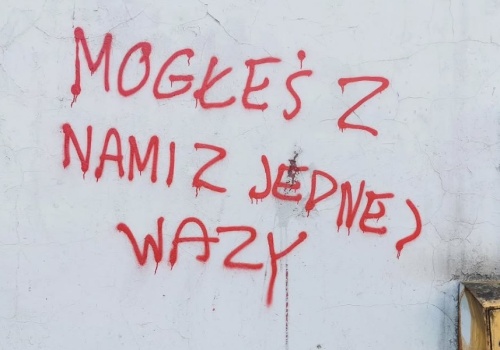 MOGŁEŚ Z
NAMI Z JEDNEJ
WAZY